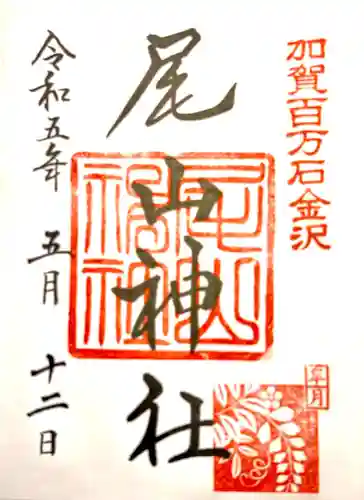 加賀百万石金沢
尾山神社
尾山神社
皐月
令和五年 五月 十二日